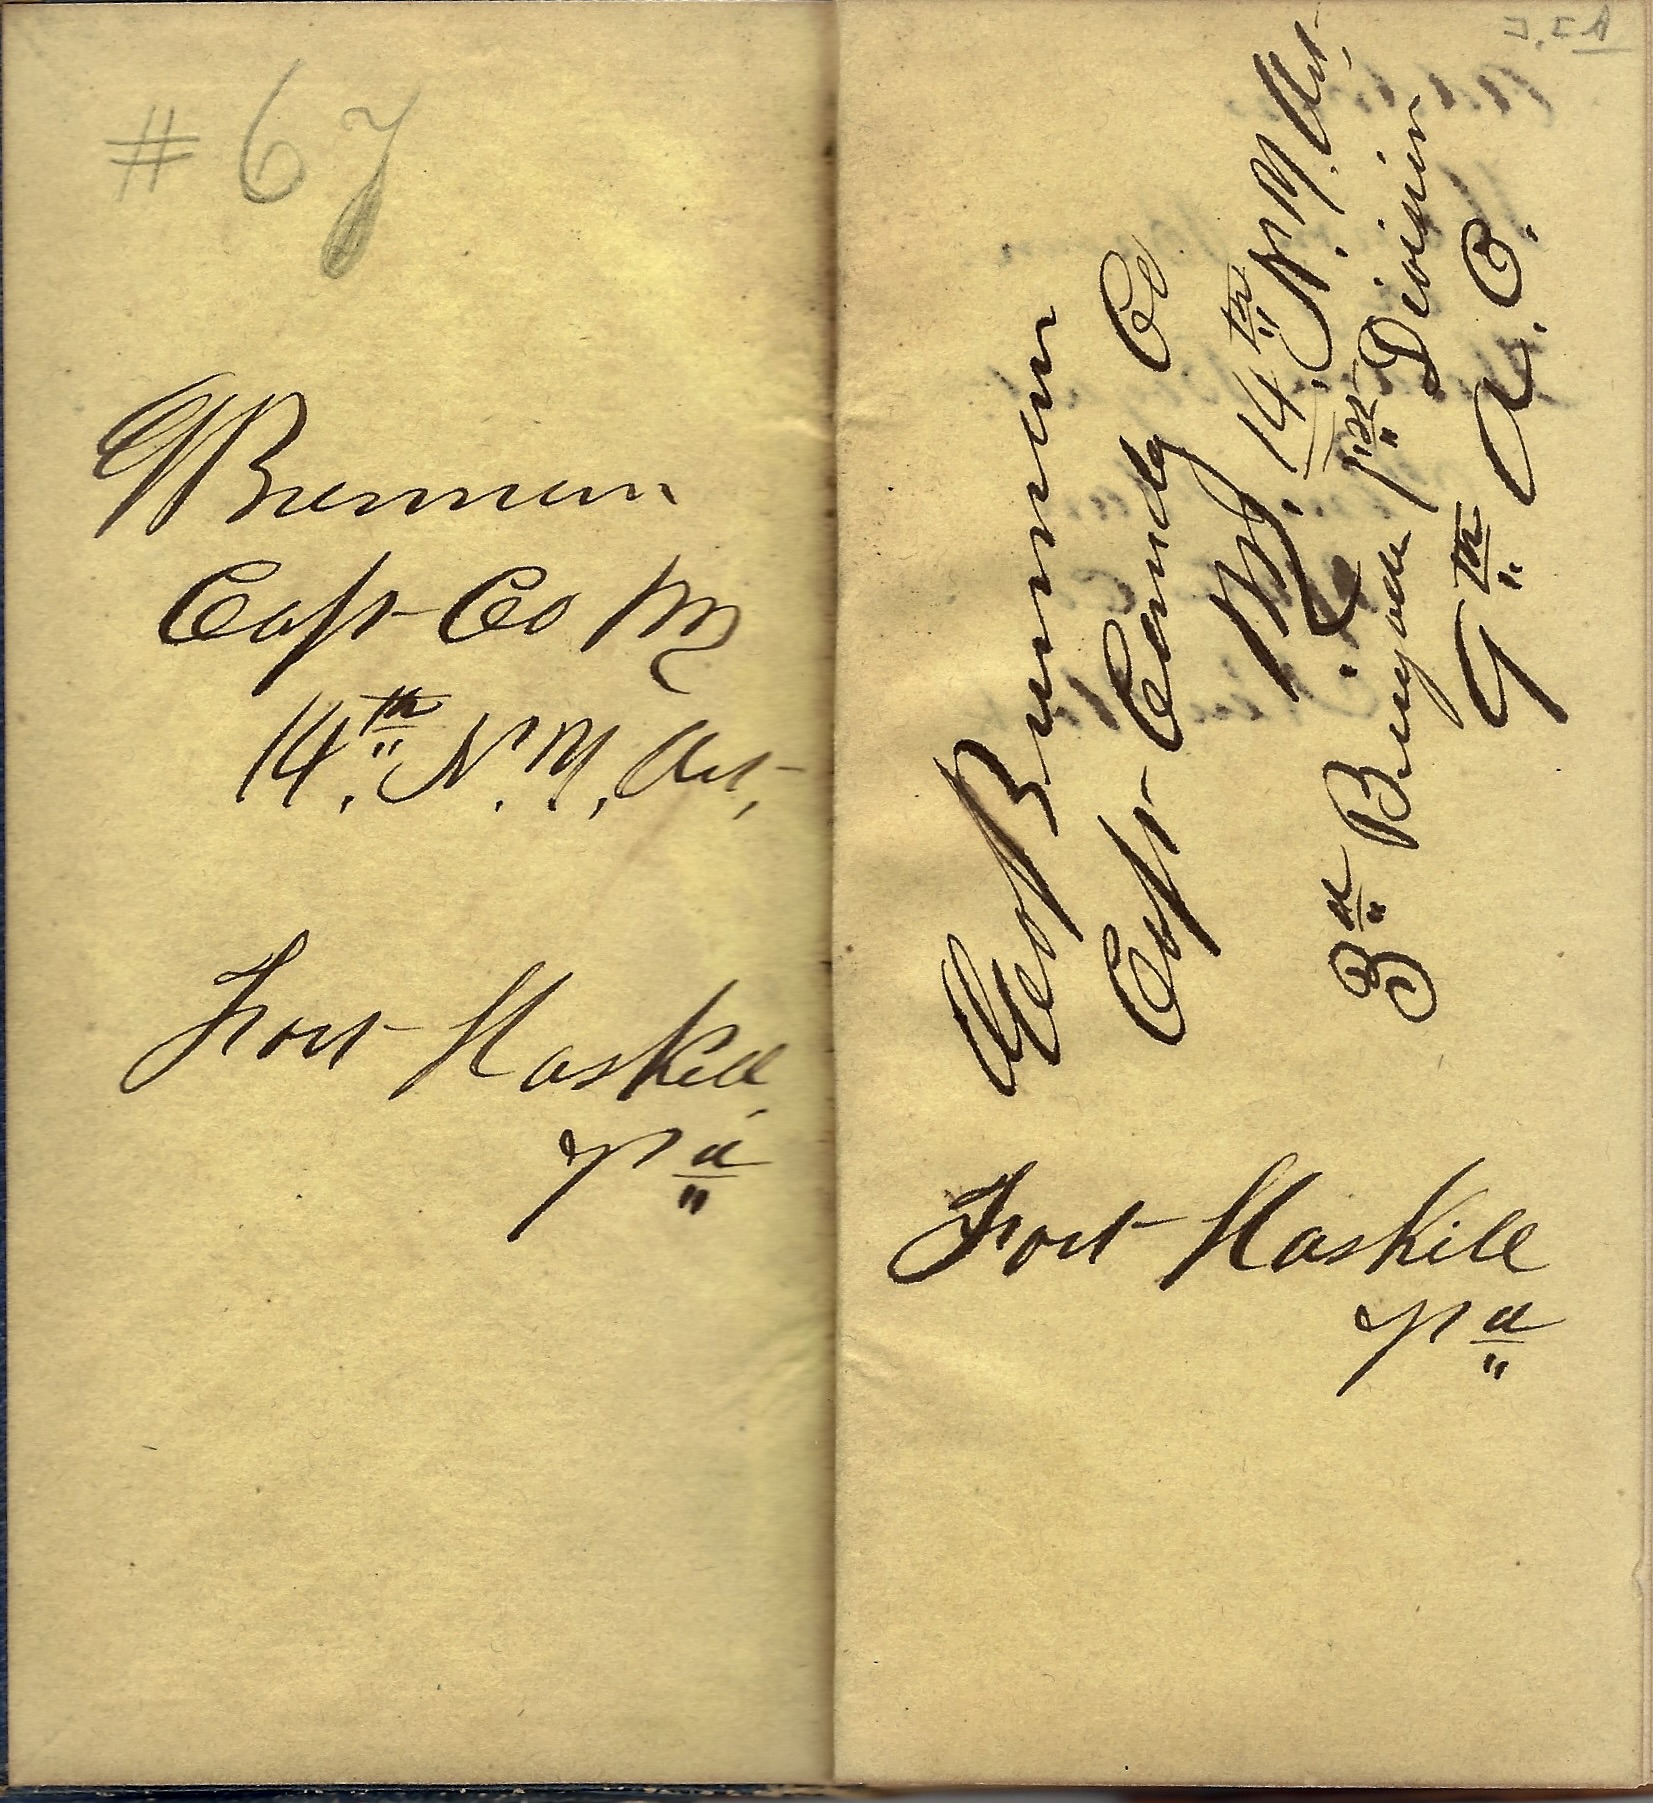 # 67
G Brennan
Capt Co M
14.th N.Y. Art,
Fort Haskell,
Va
Geo Brennan
Capt Comdg Co
M. 14.th N.Y. Art,
3d Brigade 1st Division
9th A.C.
Fort Haskell
Va